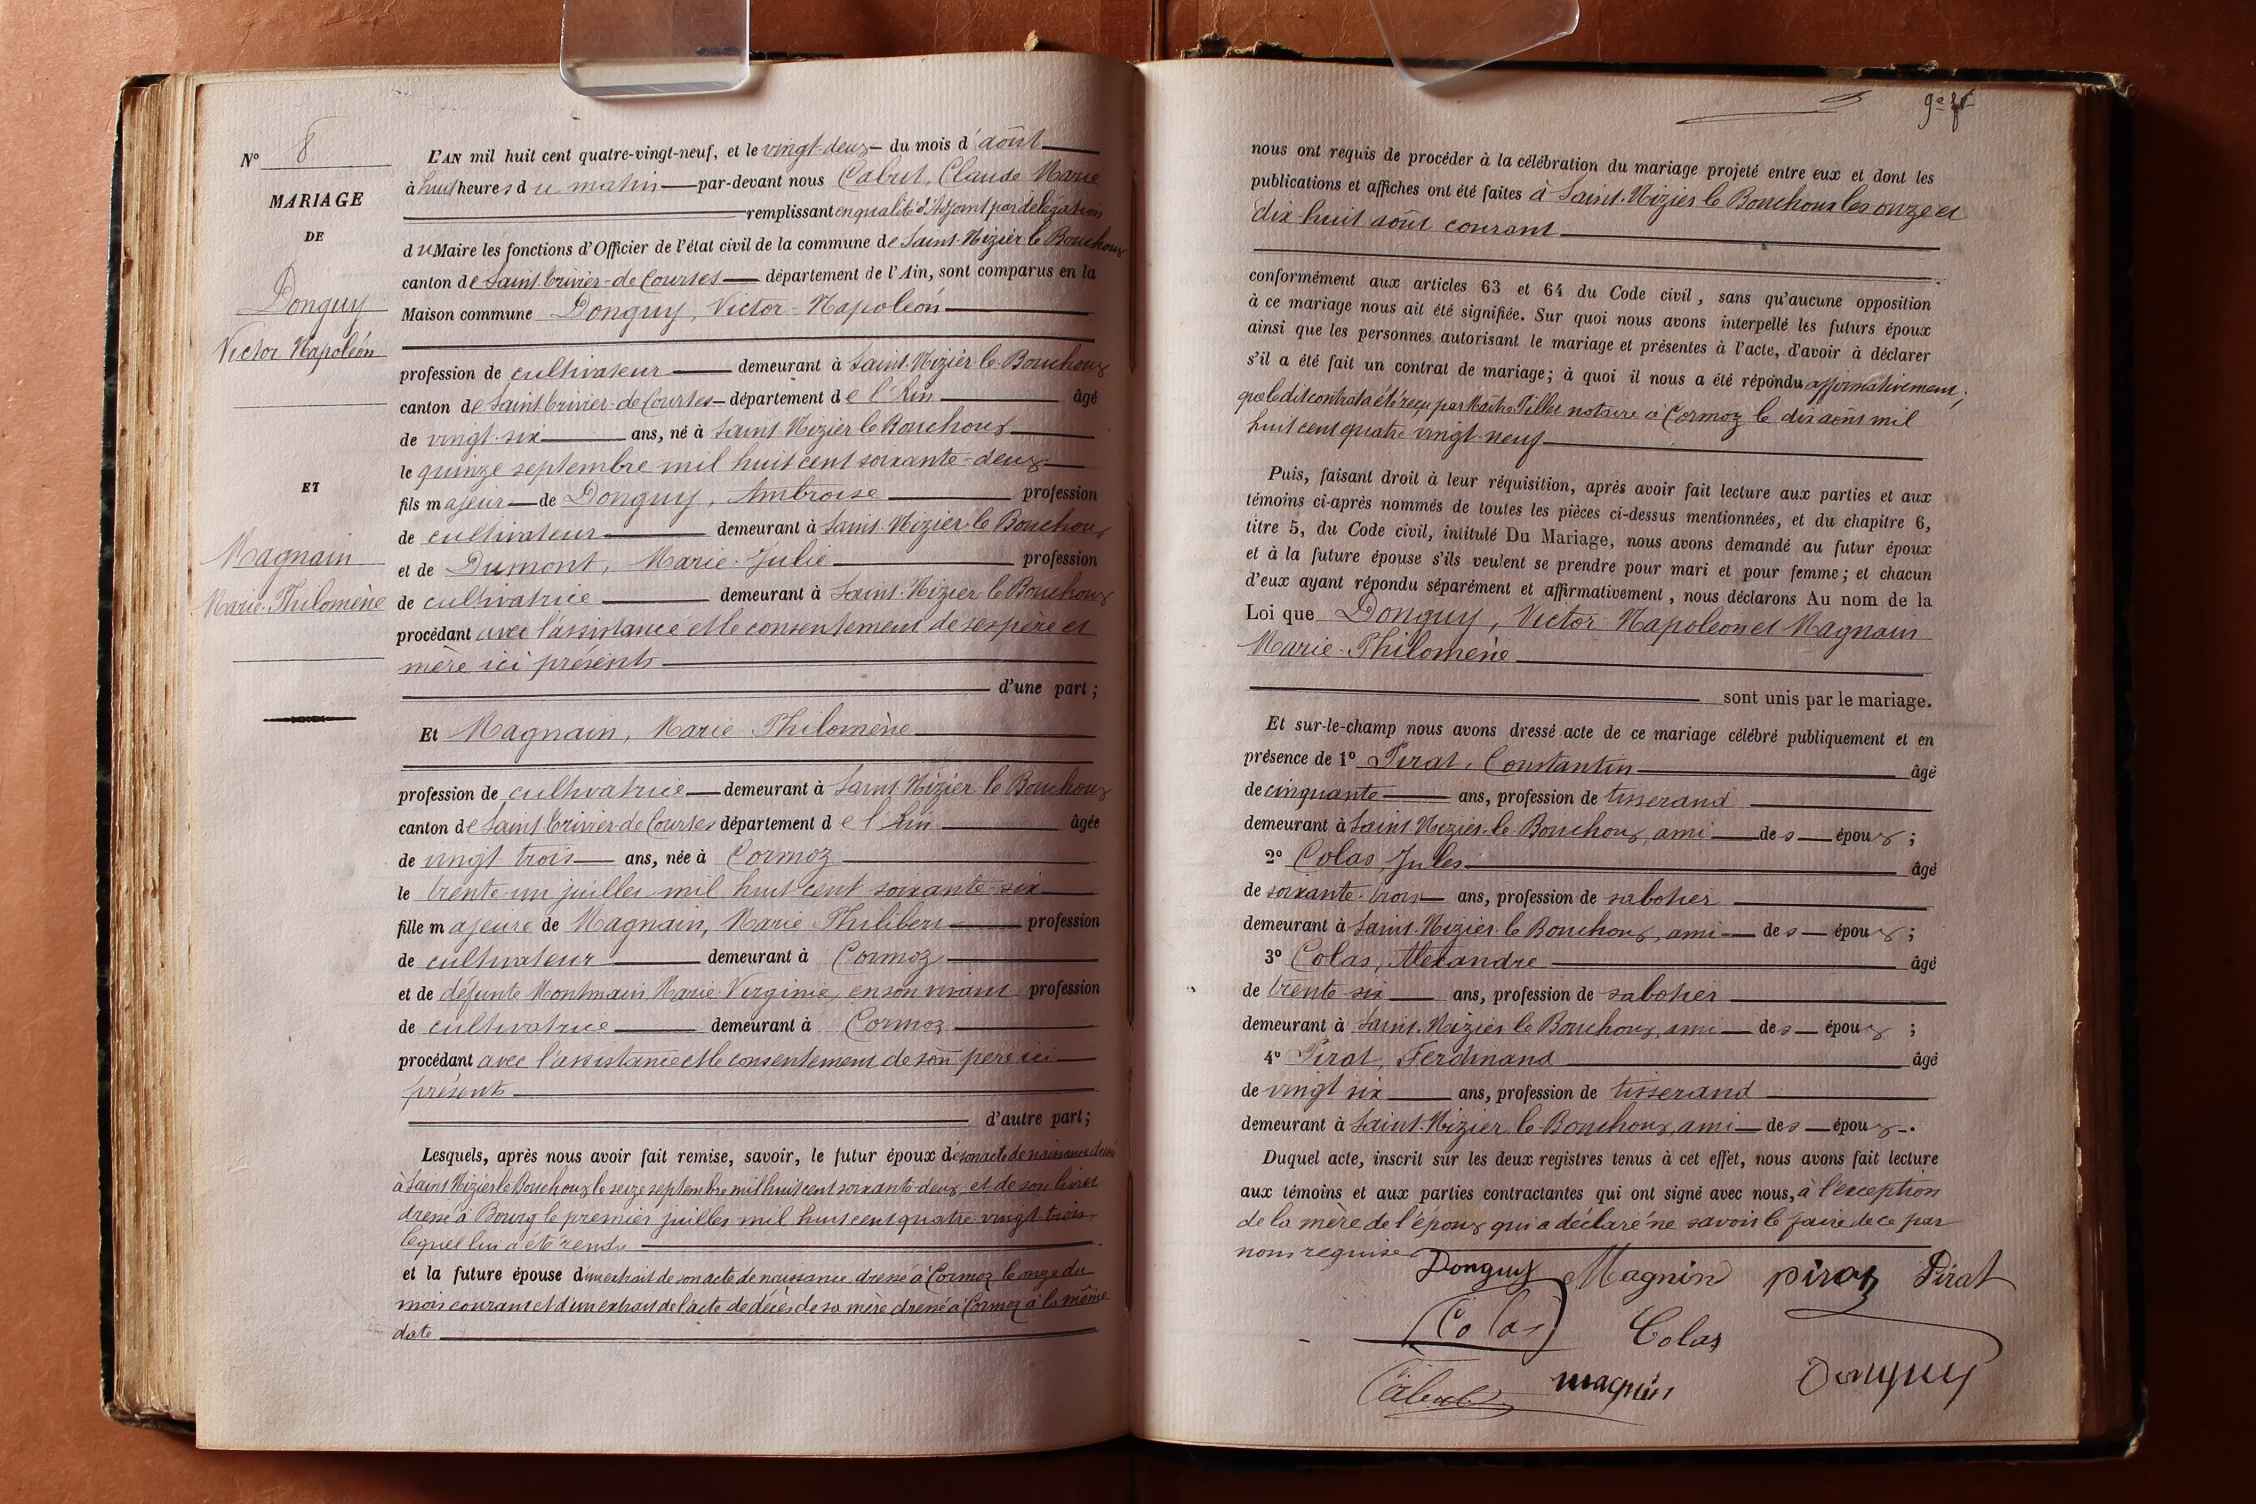 N° 8
MARIAGE
DE
Donguy
Victor Napoléon
ET
Magnain
Marie-Philomène
L'AN mil huit cent quatre-vingt-neuf, et le vingt-deux du mois d'août
à huit heures du matin par-devant nous Cabut, Claude Marie
remplissant en qualité d'Adjoint par délégation
du Maire les fonctions d'Officier de l'état civil de la commune de Saint-Nizier le Bouchoux
canton de Saint-Trivier-de-Courtes département de l'Ain, sont comparus en la
Maison commune Donguy, Victor-Napoléon
profession de cultivateur demeurant à Saint-Nizier-le-Bouchoux
canton de Saint Trivier-de-Courtes département de l'Ain âgé
de vingt-six ans, né à Saint Nizier le Bouchoux
le quinze septembre mil huit cent soixante-deux
fils majeur de Donguy, Ambroise profession
de cultivateur demeurant à Saint-Nizier-le-Bouchoux
et de Dumont, Marie-Julie profession
de cultivatrice demeurant à Saint-Nizier le Bouchoux
procédant avec l'assistance et le consentement de ses père et
mère ici présents
d'une part;
Et Magnain, Marie Philomène
profession de cultivatrice demeurant à Saint Nizier le Bouchoux
canton de Saint Trivier-de-Courtes département de l'Ain âgée
de vingt trois ans, née à Cormoz
le trente-un juillet mil huit cent soixante-six
fille majeure de Magnain, Marie Philibert profession
de cultivateur demeurant à Cormoz
et de défunte Montmain Marie-Virginie, en son vivant profession
de cultivatrice demeurant à Cormoz
procédant avec l'assistance et le consentement de son père ici
présent
d'autre part;
Lesquels, après nous avoir fait remise, savoir, le futur époux de son acte de naissance dressé
à Saint Nizier le Bouchoux le seize septembre mil huit cent soixante-deux, et de son livret
dressé à Bourg le premier juillet mil huit cent quatre vingt-trois,
lequel lui a été rendu
et la future épouse d'un extrait de son acte de naissance dressé à Cormoz le onze du
mois courant et d'un extrait de l'acte de décès de sa mère dressé à Cormoz à la même
date
9e ft
nous ont requis de procéder à la célébration du mariage projeté entre eux et dont les
publications et affiches ont été faites à Saint-Nizier le Bouchoux les onze et
dix-huit août courant
conformément aux articles 63 et 64 du Code civil, sans qu'aucune opposition
à ce mariage nous ait été signifiée. Sur quoi nous avons interpellé les futurs époux
ainsi que les personnes autorisant le mariage et présentes à l'acte, d'avoir à déclarer
s'il a été fait un contrat de mariage; à quoi il nous a été répondu affirmativement;
que ledit contrat a été reçu par Maître Pillet notaire à Cormoz le dix août mil
huit cent quatre vingt-neuf
Puis, faisant droit à leur réquisition, après avoir fait lecture aux parties et aux
témoins ci-après nommés de toutes les pièces ci-dessus mentionnées, et du chapitre 6,
titre 5, du Code civil, intitulé Du Mariage, nous avons demandé au futur époux
et à la future épouse s'ils veulent se prendre pour mari et pour femme; et chacun
d'eux ayant répondu séparément et affirmativement, nous déclarons Au nom de la
Loi que Donguy, Victor Napoléon et Magnain
Marie-Philomène
sont unis par le mariage.
Et sur-le-champ nous avons dressé acte de ce mariage célébré publiquement et en
présence de 1° Pirat, Constantin âgé
de cinquante ans, profession de tisserand
demeurant à Saint Nizier-le-Bouchoux, ami des époux;
2° Colas Jules âgé
de soixante-trois ans, profession de sabotier
demeurant à Saint-Nizier-le Bouchoux, ami des époux;
3° Colas, Alexandre âgé
de trente six ans, profession de sabotier
demeurant à Saint-Nizier le Bouchoux, ami des époux;
4° Pirat, Ferdinand âgé
de vingt six ans, profession de tisserand
demeurant à Saint-Nizier le-Bouchoux, ami des époux.
Duquel acte, inscrit sur les deux registres tenus à cet effet, nous avons fait lecture
aux témoins et aux parties contractantes qui ont signé avec nous, à l'exception
de la mère de l'époux qui a déclaré ne savoir le faire de ce par
nous requise
Donguy Magnin pirat Pirat
Colas Colas
Cabut magnin Donguy